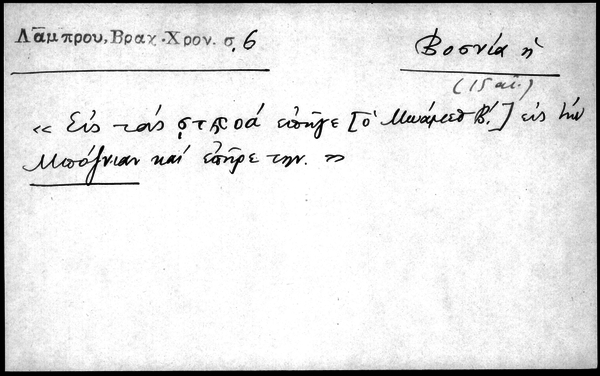 Λάμπρου, Βραχ. Χρον. σ. 6
Βοσνία ἡ
(15 αἰ.)
« Εἰς τάς ϛτποά ἐπῆγε [ὁ Μωάμεθ Β'.] εἰς τήν
Μπόσνιαν καί ἐπῆρε την. »